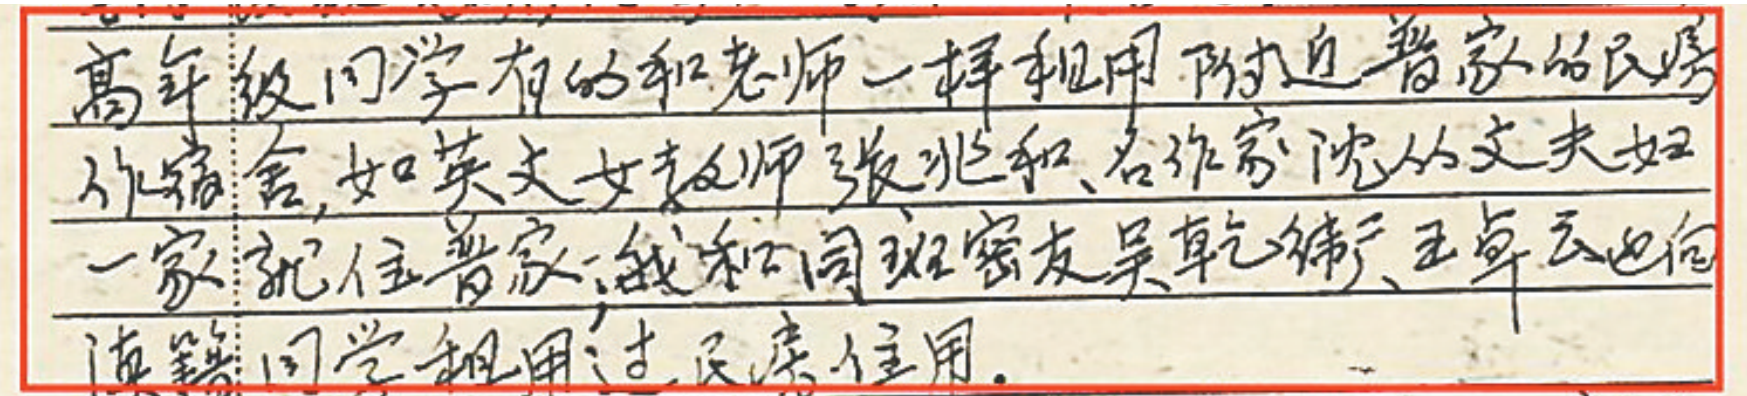 高年级同学有的和老师一样租用附近普家的民房
作宿舍,如英文女教师张兆和、名作家沈从文夫妇
一家就住普家;我和同班密友吴乾纬、王卓云也向
滇籍同学租用过民房住用.